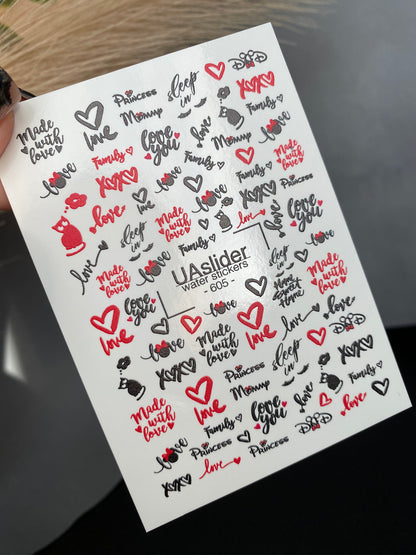 Made
with
love
love
PRINCESS
Mommy
sleep
in
DAD
XOXO
Family
Mommy
love
Made
with
love
love
Family
XOXO
love
love
you
love
Family
love
XOXO
PRINCESS
love
sleep
in
Made
with
love
love
love
love
you
Family
UAslider
water stickers
- 605 -
sleep
in
love
Made
with
love
love
Home
sweet
Home
love
you
love
love
love
love
Made
with
love
love
sleep
in
DAD
XOXO
XOXO
love
PRINCESS
Mommy
Family
Made
with
love
Family
love
you
love
love
love
PRINCESS
PRINCESS
DAD
XOXO
love